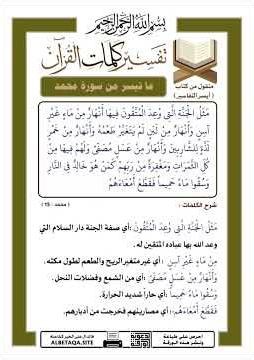 بسم الله الرحمن الرحيم
تفسير كلمات القرآن
منقول من كتاب
( أيسر التفاسير )
ما تيسر من سورة محمد
مَثَلُ الْجَنَّةِ الَّتِي وُعِدَ الْمُتَّقُونَ فِيهَا أَنْهَارٌ مِنْ مَاءٍ غَيْرِ
آسِنٍ وَأَنْهَارٌ مِنْ لَبَنٍ لَمْ يَتَغَيَّرْ طَعْمُهُ وَأَنْهَارٌ مِنْ خَمْرٍ
لَذَّةٍ لِلشَّارِبِينَ وَأَنْهَارٌ مِنْ عَسَلٍ مُصَفًّى وَلَهُمْ فِيهَا مِنْ
كُلِّ الثَّمَرَاتِ وَمَغْفِرَةٌ مِنْ رَبِّهِمْ كَمَنْ هُوَ خَالِدٌ فِي النَّارِ
وَسُقُوا مَاءً حَمِيماً فَقَطَّعَ أَمْعَاءَهُمْ
شرح الكلمات :
( محمد : 15 )
مَثَلُ الْجَنَّةِ الَّتِي وُعِدَ الْمُتَّقُونَ : أي صفة الجنة دار السلام التي
وعد الله بها عباده المتقين له .
مِنْ مَاءٍ غَيْرِ آسِنٍ : أي غير متغير الريح والطعم لطول مكثه .
وَأَنْهَارٌ مِنْ عَسَلٍ مُصَفًّى : أي من الشمع وفضلات النحل .
وَسُقُوا مَاءً حَمِيماً : أي حاراً شديد الحرارة .
فَقَطَّعَ أَمْعَاءَهُمْ : أي مصارينهم فخرجت من أدبارهم .
احرص على طباعة
ونشر هذه البطاقة
ALBETAQA.SITE